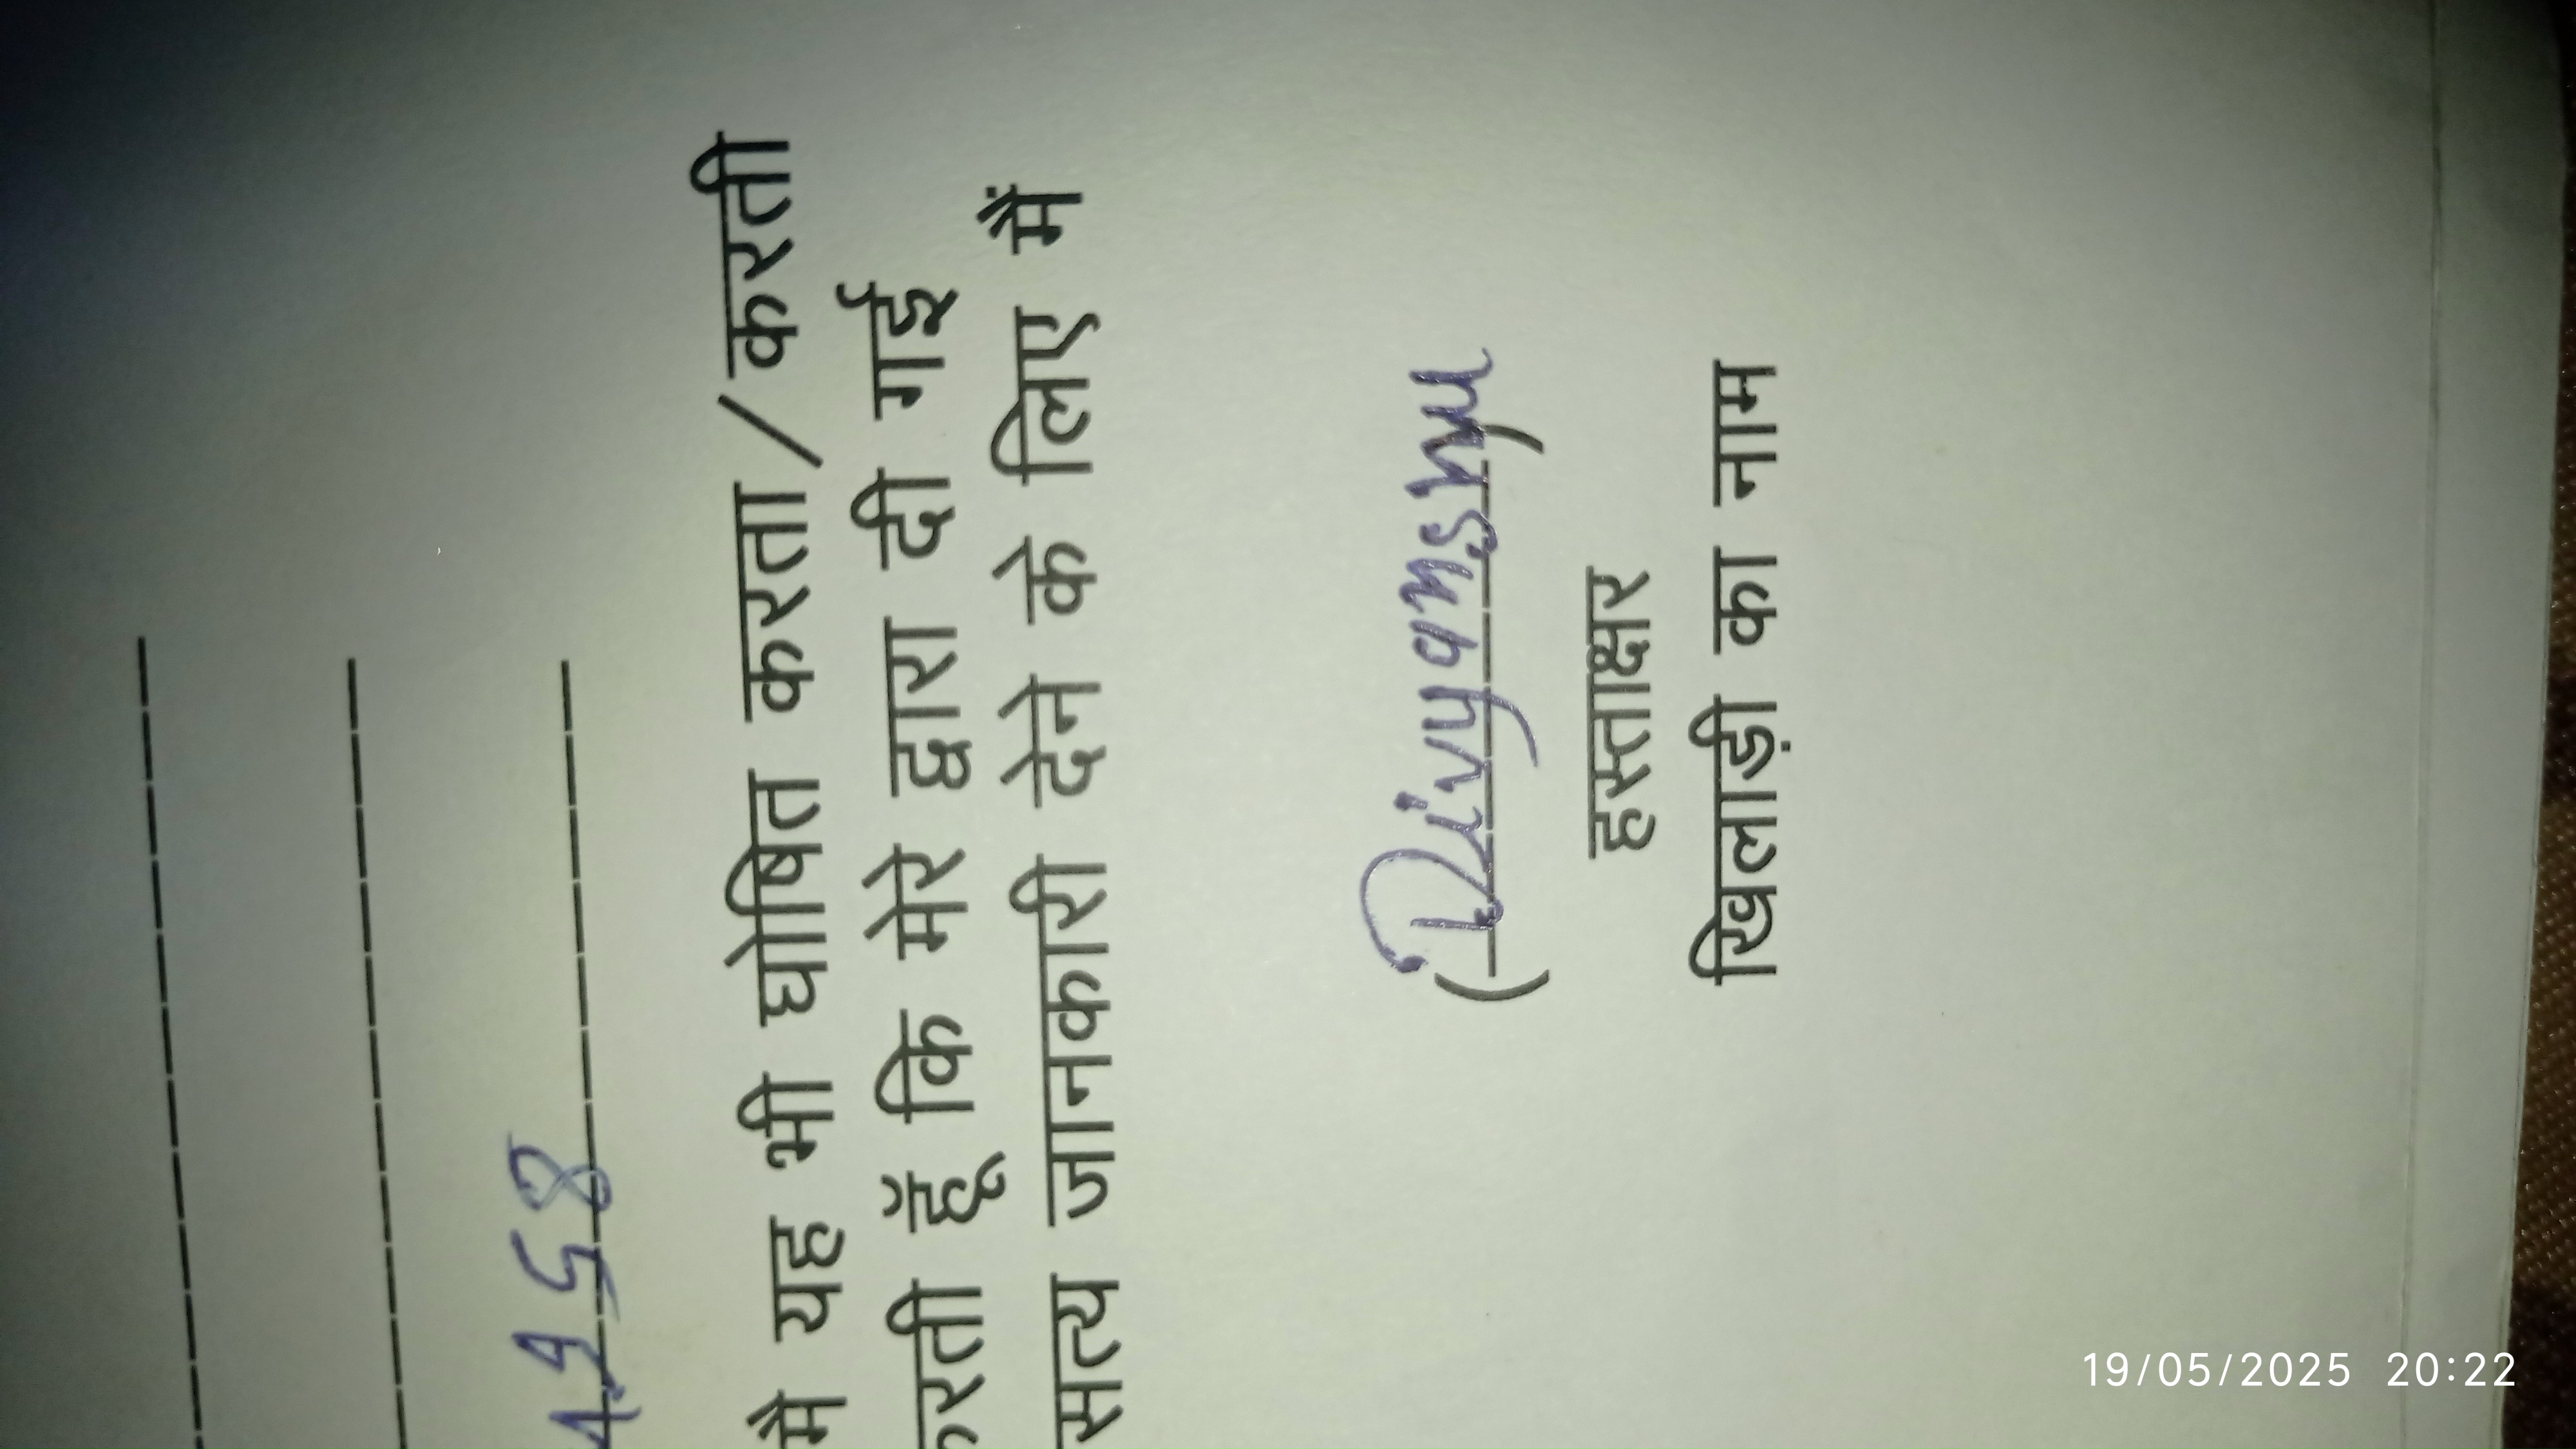 958
मै यह भी घोषित करता/करती
करती हूँ कि मेरे द्वारा दी गई
सत्य जानकारी देने के लिए मैं
(Divyanshu)
हस्ताक्षर
खिलाड़ी का नाम
19/05/2025 20:22